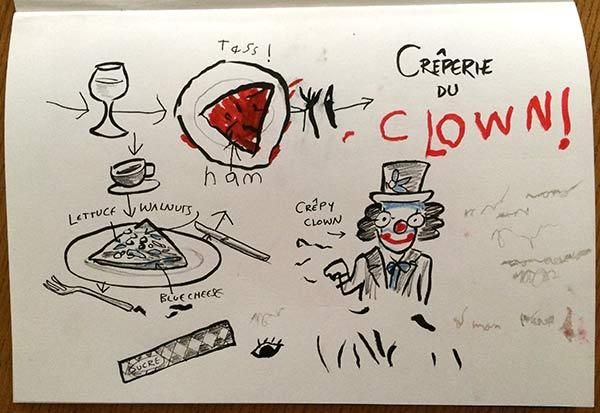 Tass!
CRÊPERIE
DU
CLOWN!
ham
LETTUCE
WALNUTS
CRÊPY
CLOWN
BLUECHEESE
SUCRE